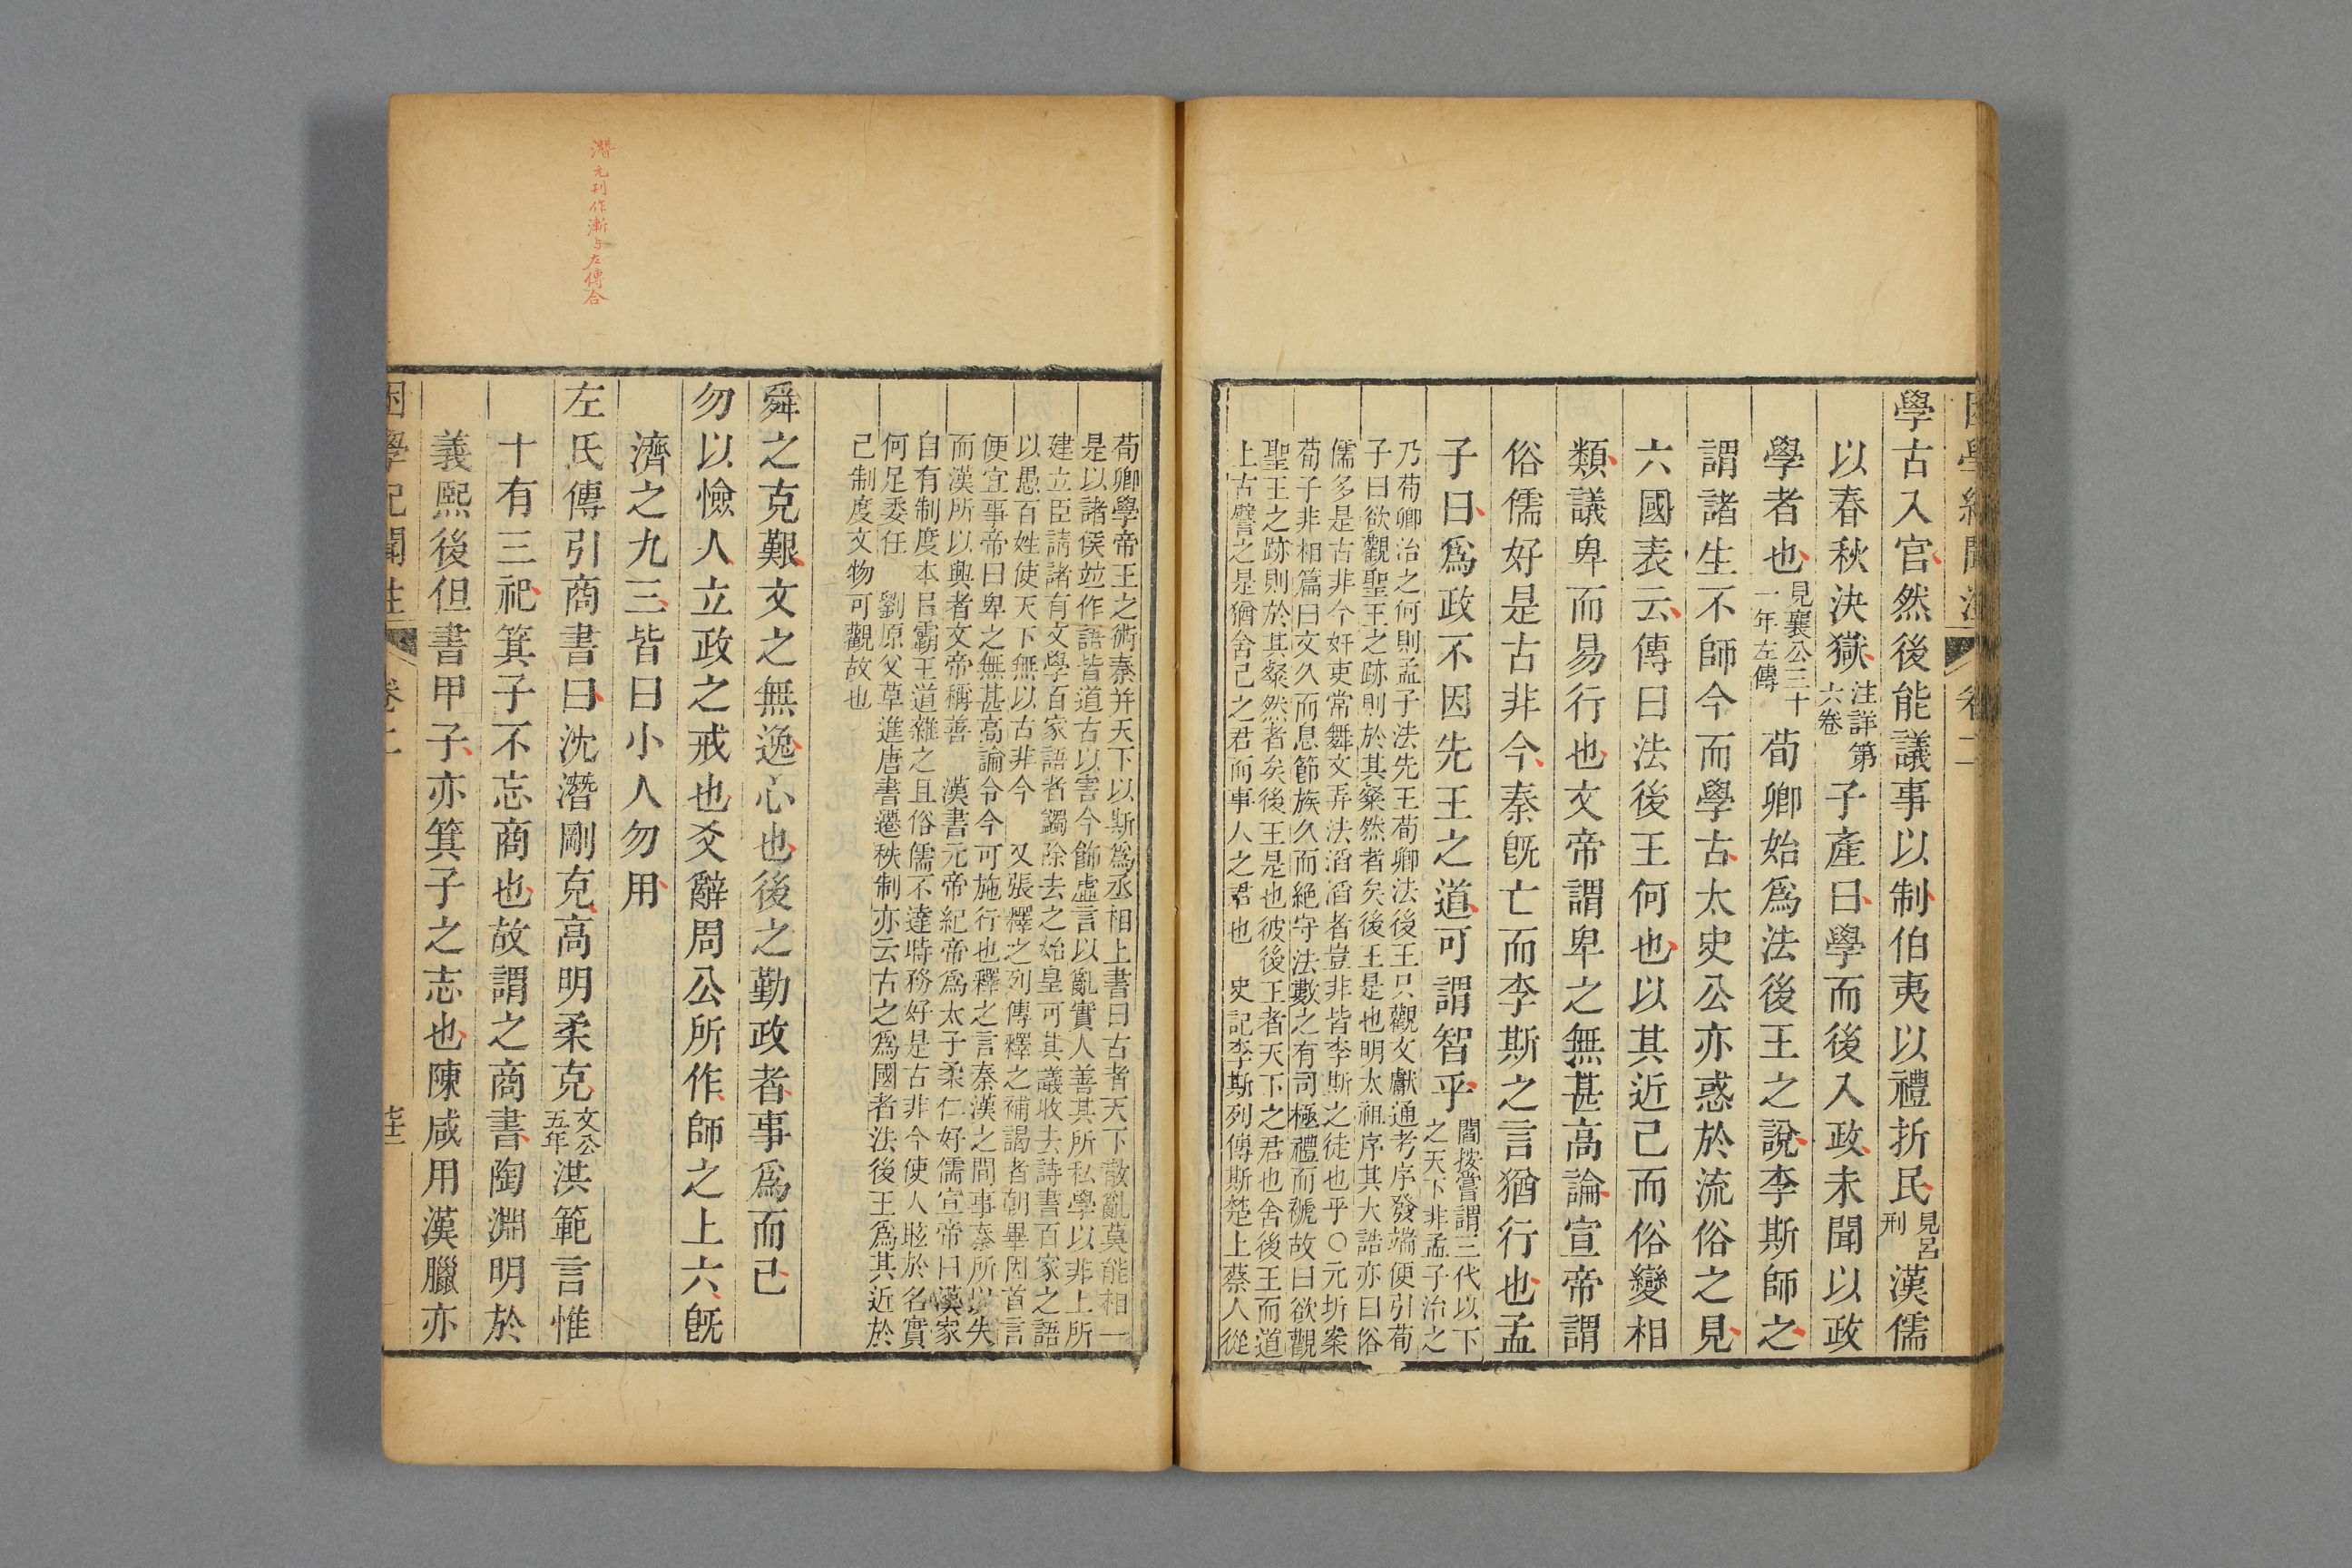 學古入官然後能議事以制伯夷以禮折民見呂刑漢儒
以春秋決獄注詳第六卷子產曰學而後入政未聞以政
學者也見襄公三十一年左傳荀卿始爲法後王之說李斯師之
謂諸生不師今而學古太史公亦惑於流俗之見
六國表云傳曰法後王何也以其近己而俗變相
類議卑而易行也文帝謂卑之無甚高論宣帝謂
俗儒好是古非今秦旣亡而李斯之言猶行也孟
子曰爲政不因先王之道可謂智乎閻按嘗謂三代以下之天下非孟子治之
乃荀卿治之何則孟子法先王荀卿法後王只觀文獻通考序發端便引荀
子曰欲觀聖王之跡則於其粲然者矣後王是也明太祖序其大誥亦曰俗
儒多是古非今奸吏常舞文弄法滔滔者豈非皆李斯之徒也乎○元圻案
荀子非相篇曰文久而息節族久而絶守法數之有司極禮而褫故曰欲觀
聖王之跡則於其粲然者矣後王是也彼後王者天下之君也舍後王而道
上古譬之是猶舍己之君而事人之君也 史記李斯列傳斯楚上蔡人從
荀卿學帝王之術秦并天下以斯爲丞相上書曰古者天下散亂莫能相一
是以諸侯竝作語皆道古以害今飾虛言以亂實人善其所私學以非上所
建立臣請諸有文學百家語者蠲除去之始皇可其議收去詩書百家之語
以愚百姓使天下無以古非今 又張釋之列傳釋之補謁者朝畢因首言
便宜事帝曰卑之無甚高論令今可施行也釋之言秦漢之間事秦所以失
而漢所以興者文帝稱善 漢書元帝紀帝爲太子柔仁好儒宣帝曰漢家
自有制度本以霸王道雜之且俗儒不達時務好是古非今使人眩於名實
何足委任 劉原父草進唐書遷秩制亦云古之爲國者法後王爲其近於
己制度文物可觀故也
舜之克艱文之無逸心也後之勤政者事爲而已
勿以憸人立政之戒也爻辭周公所作師之上六旣
濟之九三皆曰小人勿用
左氏傳引商書曰沈潛剛克高明柔克文公五年洪範言惟
十有三祀箕子不忘商也故謂之商書陶淵明於
義熙後但書甲子亦箕子之志也陳咸用漢臘亦
困學紀聞注 卷二
潛元刊作漸与左傳合